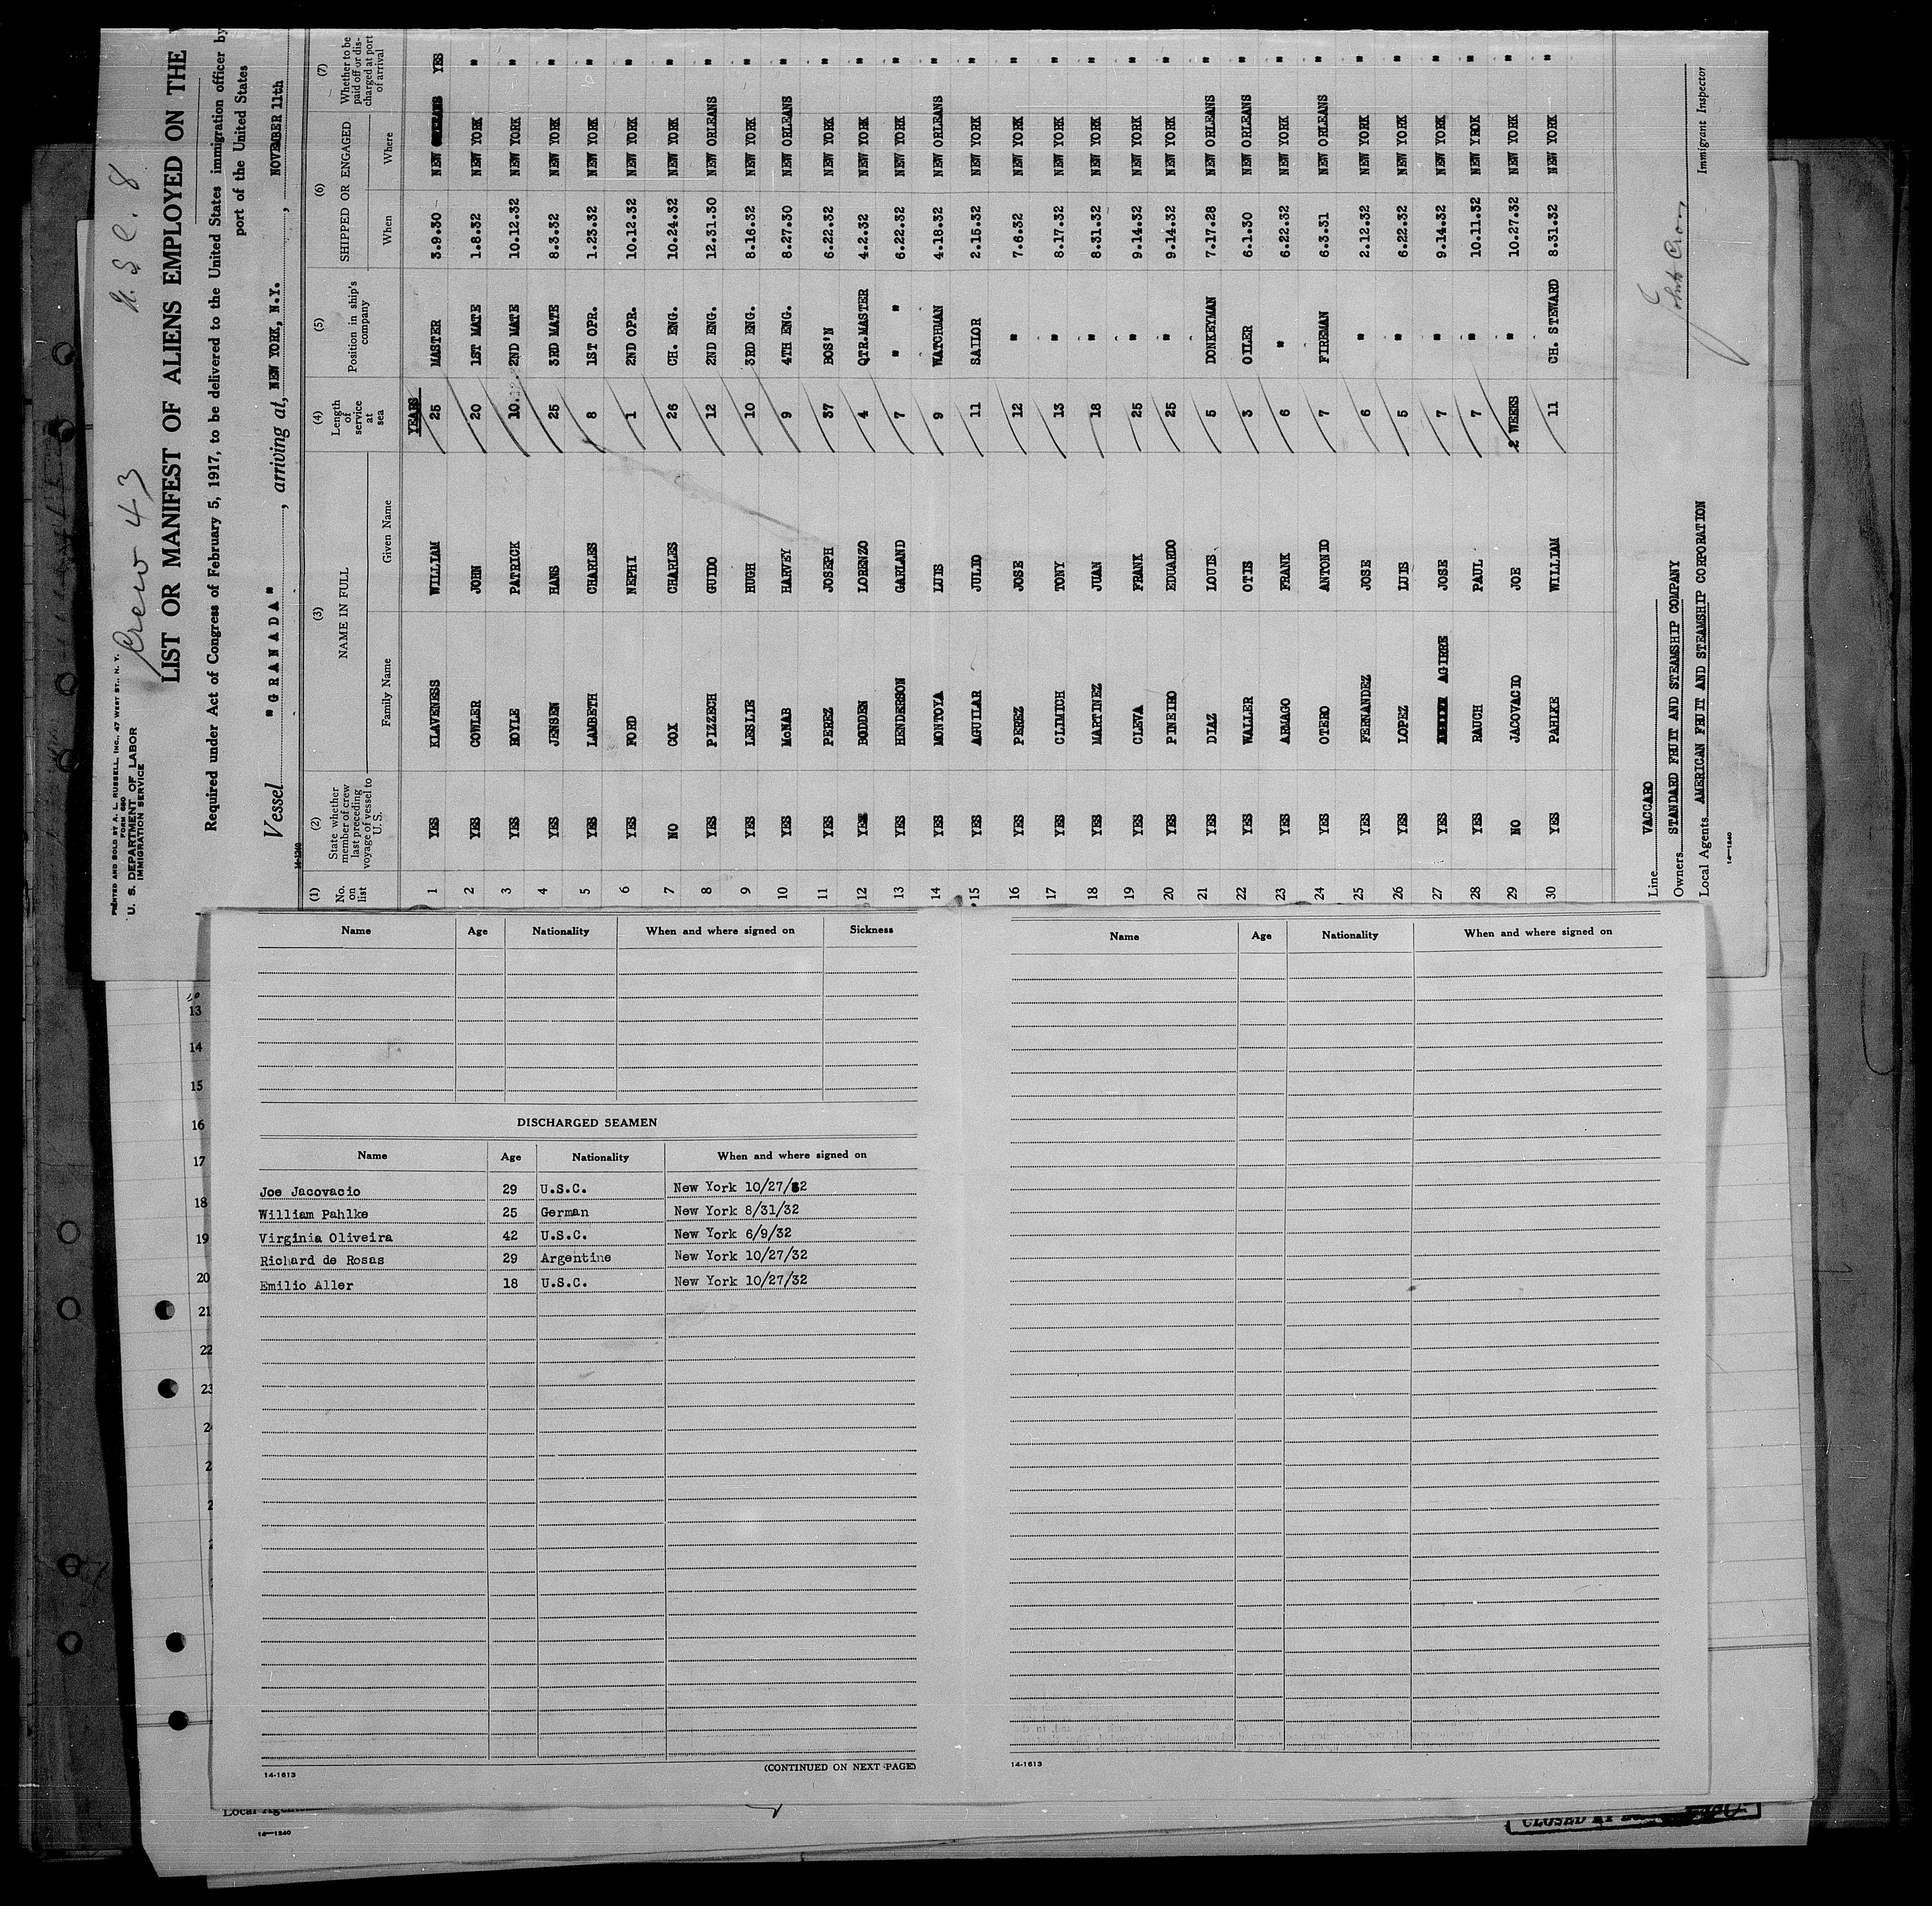 Crew 43
PRINTED AND SOLD BY A. L. RUSSELL, INC., 47 WEST ST., N. Y.
FORM 680
U. S. DEPARTMENT OF LABOR
IMMIGRATION SERVICE
LIST OR MANIFEST OF ALIENS EMPLOYED ON THE
Required under Act of Congress of February 5, 1917, to be delivered to the United States immigration officer by
port of the United States
Vessel "GRANADA", arriving at, NEW YORK, N.Y., NOVEMBER 11th
14-1240
(1) (2) (3) (4) (5) (6) (7)
No. on list State whether member of crew last preceding voyage of vessel to U.S. NAME IN FULL Length of service at sea Position in ship's company SHIPPED OR ENGAGED Whether to be paid off or discharged at port of arrival
Family Name Given Name When Where
YEARS
1 YES KLAVENESS WILLIAM 25 MASTER 3.9.30 NEW YES
2 YES COWLER JOHN 20 1ST MATE 1.8.32 NEW YORK "
3 YES HOYLE PATRICK 10 2ND MATE 10.12.32 NEW YORK "
4 YES JENSEN HANS 25 3RD MATE 8.3.32 NEW YORK "
5 YES LAMBETH CHARLES 8 1ST OPR. 1.23.32 NEW YORK "
6 YES FORD NEPHI 1 2ND OPR. 10.12.32 NEW YORK "
7 NO COX CHARLES 26 CH. ENG. 10.24.32 NEW YORK "
8 YES PIZZECH GUIDO 12 2ND ENG. 12.31.30 NEW ORLEANS "
9 YES LESLIE HUGH 10 3RD ENG. 8.16.32 NEW YORK "
10 YES McNAB HARVEY 9 4TH ENG. 8.27.30 NEW ORLEANS "
11 YES PEREZ JOSEPH 37 BOS'N 6.22.32 NEW YORK "
12 YES BODDEN LORENZO 4 QTR.MASTER 4.2.32 NEW YORK "
13 YES HENDERSON GARLAND 7 " " 6.22.32 NEW YORK "
14 YES MONTOYA LUIS 9 WATCHMAN 4.18.32 NEW ORLEANS "
15 YES AGUILAR JULIO 11 SAILOR 2.15.32 NEW YORK "
16 YES PEREZ JOSE 12 " 7.6.32 NEW YORK "
17 YES CLIMICH TONY 13 " 8.17.32 NEW YORK "
18 YES MARTINEZ JUAN 18 " 8.31.32 NEW YORK "
19 YES CLEVA FRANK 25 " 9.14.32 NEW YORK "
20 YES PINEIRO EDUARDO 25 " 9.14.32 NEW YORK "
21 YES DIAZ LOUIS 5 DONKEYMAN 7.17.28 NEW ORLEANS "
22 YES WALLER OTIS 3 OILER 6.1.30 NEW ORLEANS "
23 YES ARMAGO FRANK 6 " 6.22.32 NEW YORK "
24 YES OTERO ANTONIO 7 FIREMAN 6.3.31 NEW ORLEANS "
25 YES FERNANDEZ JOSE 6 " 2.12.32 NEW YORK "
26 YES LOPEZ LUIS 5 " 6.22.32 NEW YORK "
27 YES AGIRRE JOSE 7 " 9.14.32 NEW YORK "
28 YES RAUCH PAUL 7 " 10.11.32 NEW YROK "
29 NO JACOVACIO JOE 2 WEEKS " 10.27.32 NEW YORK "
30 YES PAHLKE WILLIAM 11 CH. STEWARD 8.31.32 NEW YORK "
Line VACCARO
Owners STANDARD FRUIT AND STEAMSHIP COMPANY
Local Agents AMERICAN FRUIT AND STEAMSHIP CORPORATION
Immigrant Inspector
14-1240
Name Age Nationality When and where signed on Sickness
DISCHARGED SEAMEN
Name Age Nationality When and where signed on
Joe Jacovacio 29 U.S.C. New York 10/27/32
William Pahlke 25 German New York 8/31/32
Virginia Oliveira 42 U.S.C. New York 6/9/32
Richard de Rosas 29 Argentine New York 10/27/32
Emilio Aller 18 U.S.C. New York 10/27/32
14-1613
(CONTINUED ON NEXT PAGE)
Name Age Nationality When and where signed on
14-1613
13
14
15
16
17
18
19
20
21
22
23
Local
14-1240
CLOSED